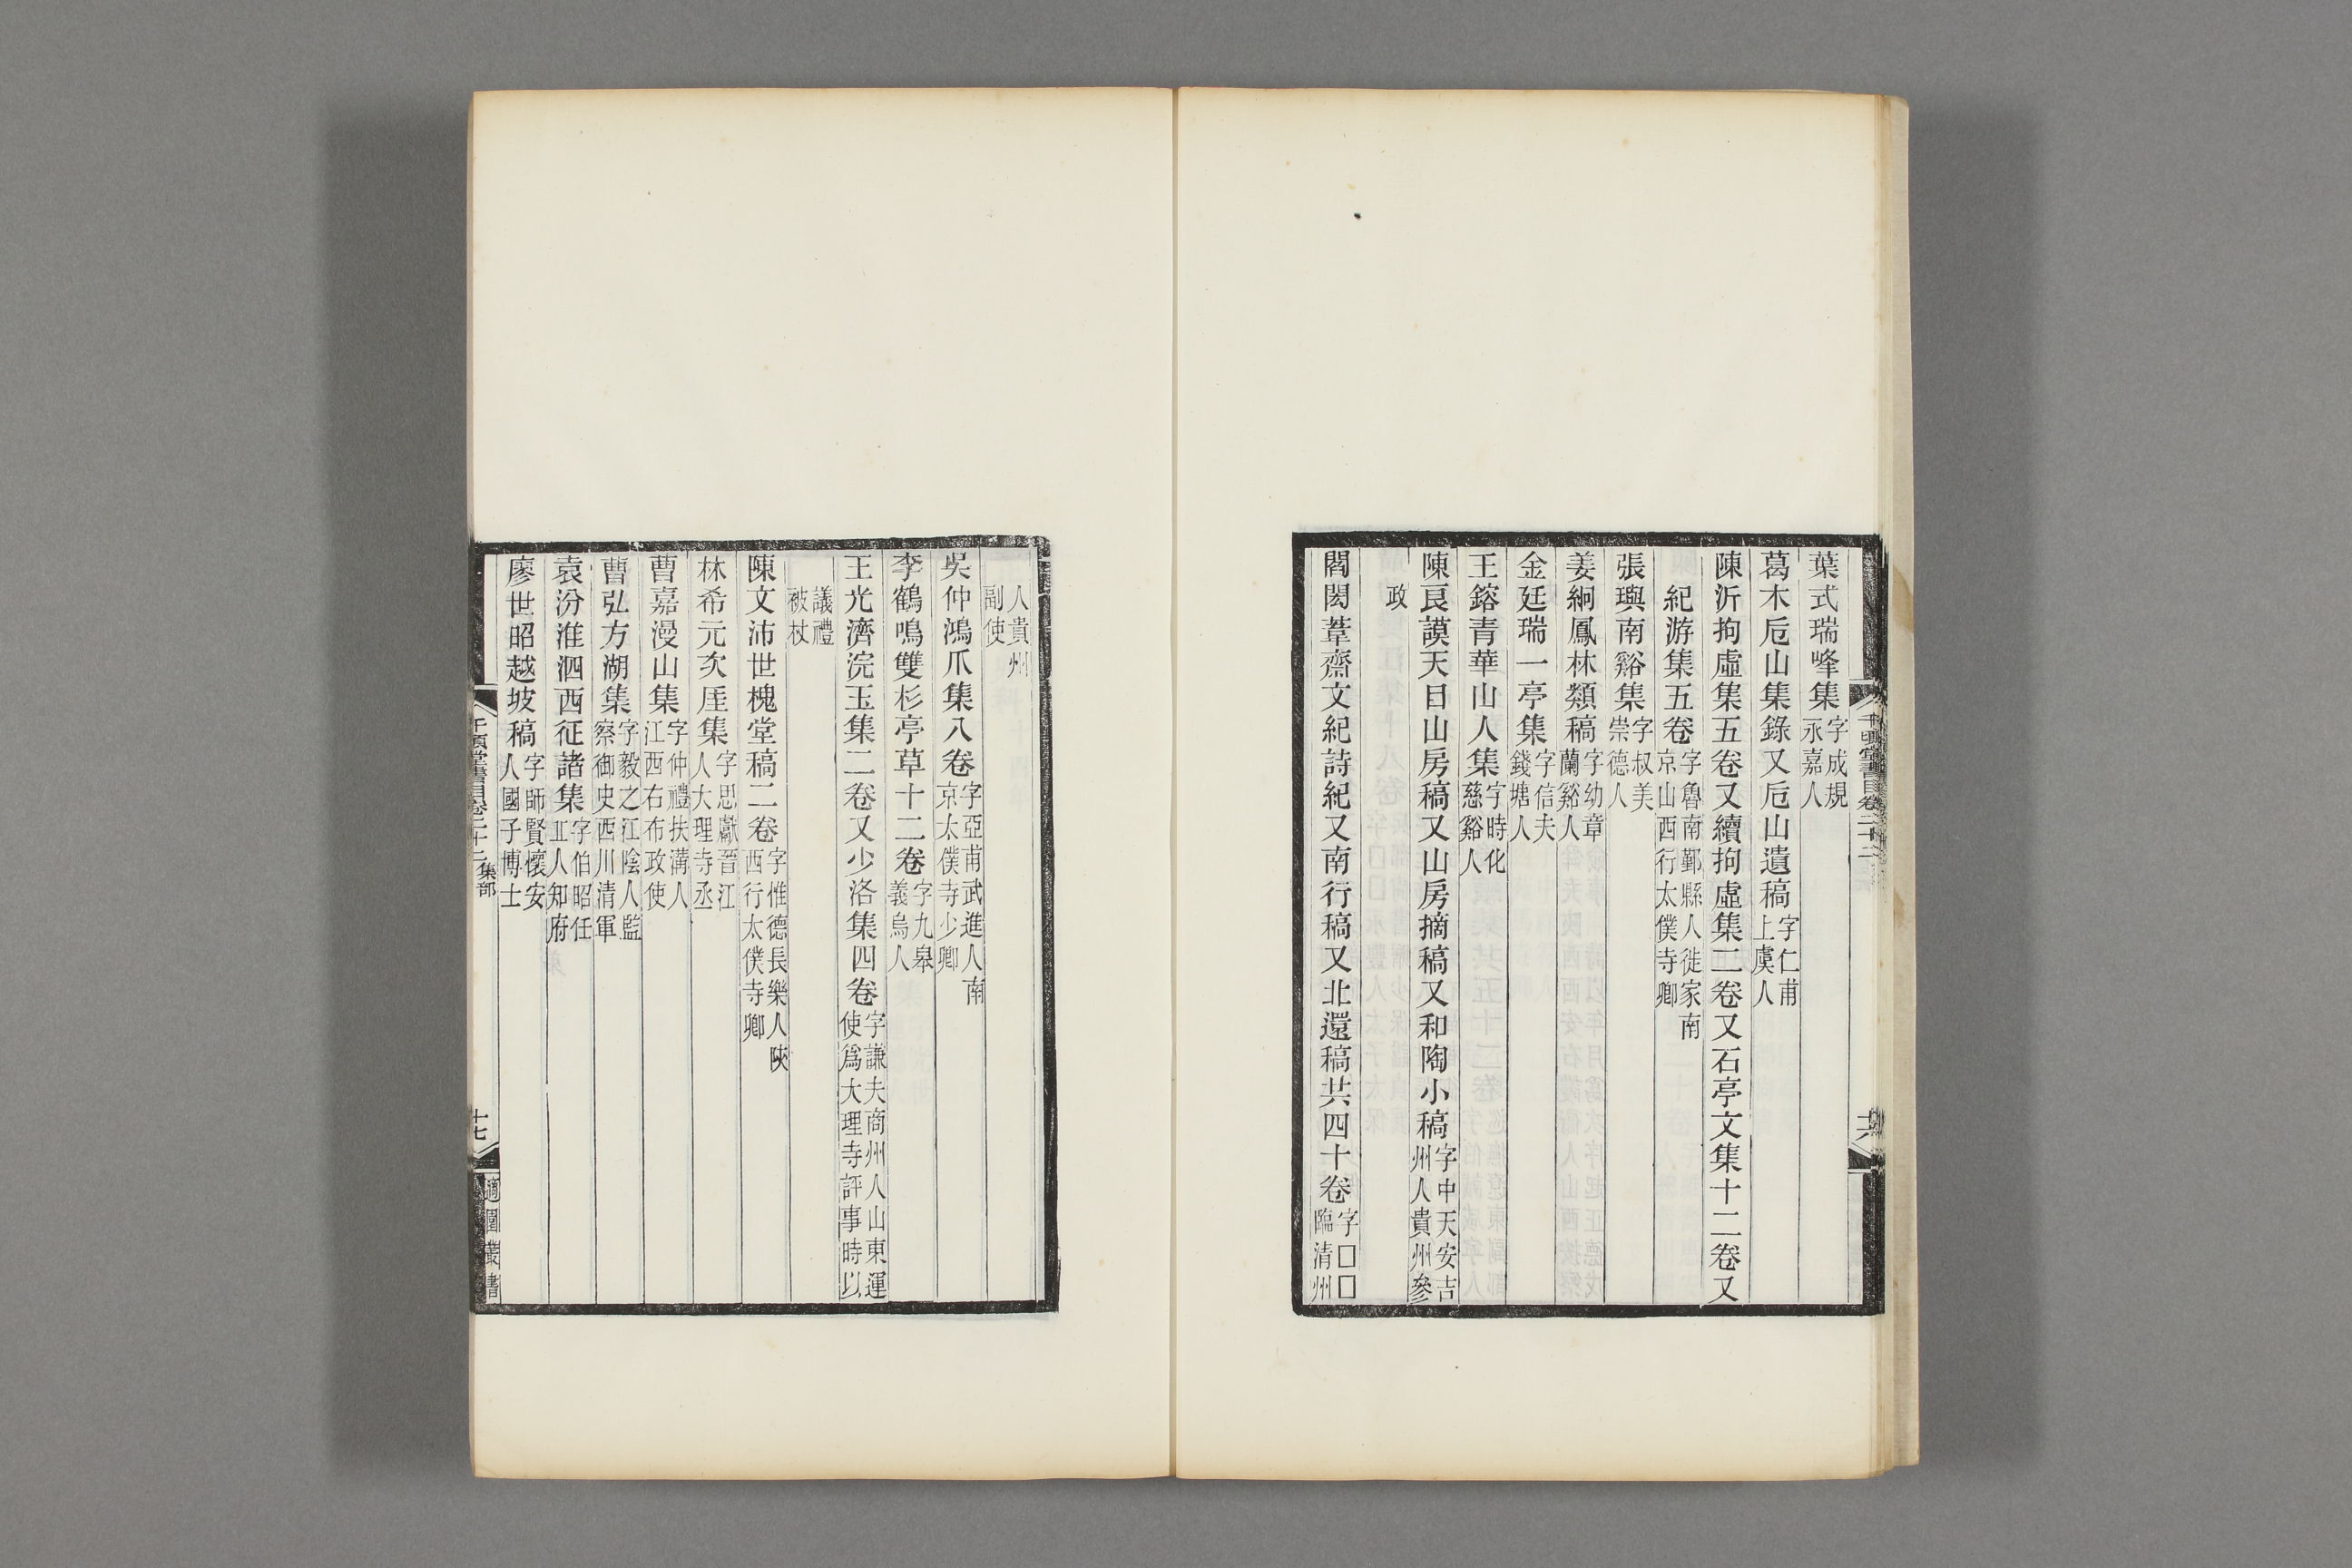 葉式瑞峰集字成規永嘉人
葛木卮山集錄又卮山遺稿字仁甫上虞人
陳沂拘虛集五卷又續拘虛集二卷又石亭文集十二卷又
紀游集五卷字魯南鄞縣人徙家南京山西行太僕寺卿
張璵南谿集字叔美崇德人
姜絅鳳林類稿字幼章蘭谿人
金廷瑞一亭集字信夫錢塘人
王鎔青華山人集字時化慈谿人
陳良謨天目山房稿又山房摘稿又和陶小稿字中天安吉州人貴州參
政
閻閎葦齋文紀詩紀又南行稿又北還稿共四十卷字□□臨清州
人貴州副使
吳仲鴻爪集八卷字亞甫武進人南京太僕寺少卿
李鶴鳴雙杉亭草十二卷字九皋義烏人
王光濟浣玉集二卷又少洛集四卷字謙夫商州人山東運使爲大理寺評事時以
議禮被杖
陳文沛世槐堂稿二卷字惟德長樂人陝西行太僕寺卿
林希元次厓集字思獻晉江人大理寺丞
曹嘉漫山集字仲禮扶溝人江西右布政使
曹弘方湖集字毅之江陰人監察御史西川清軍
袁汾淮泗西征諸集字伯昭任丘人知府
廖世昭越坡稿字師賢懷安人國子博士
千頃堂書目卷二十二 集部
十七
適園叢書